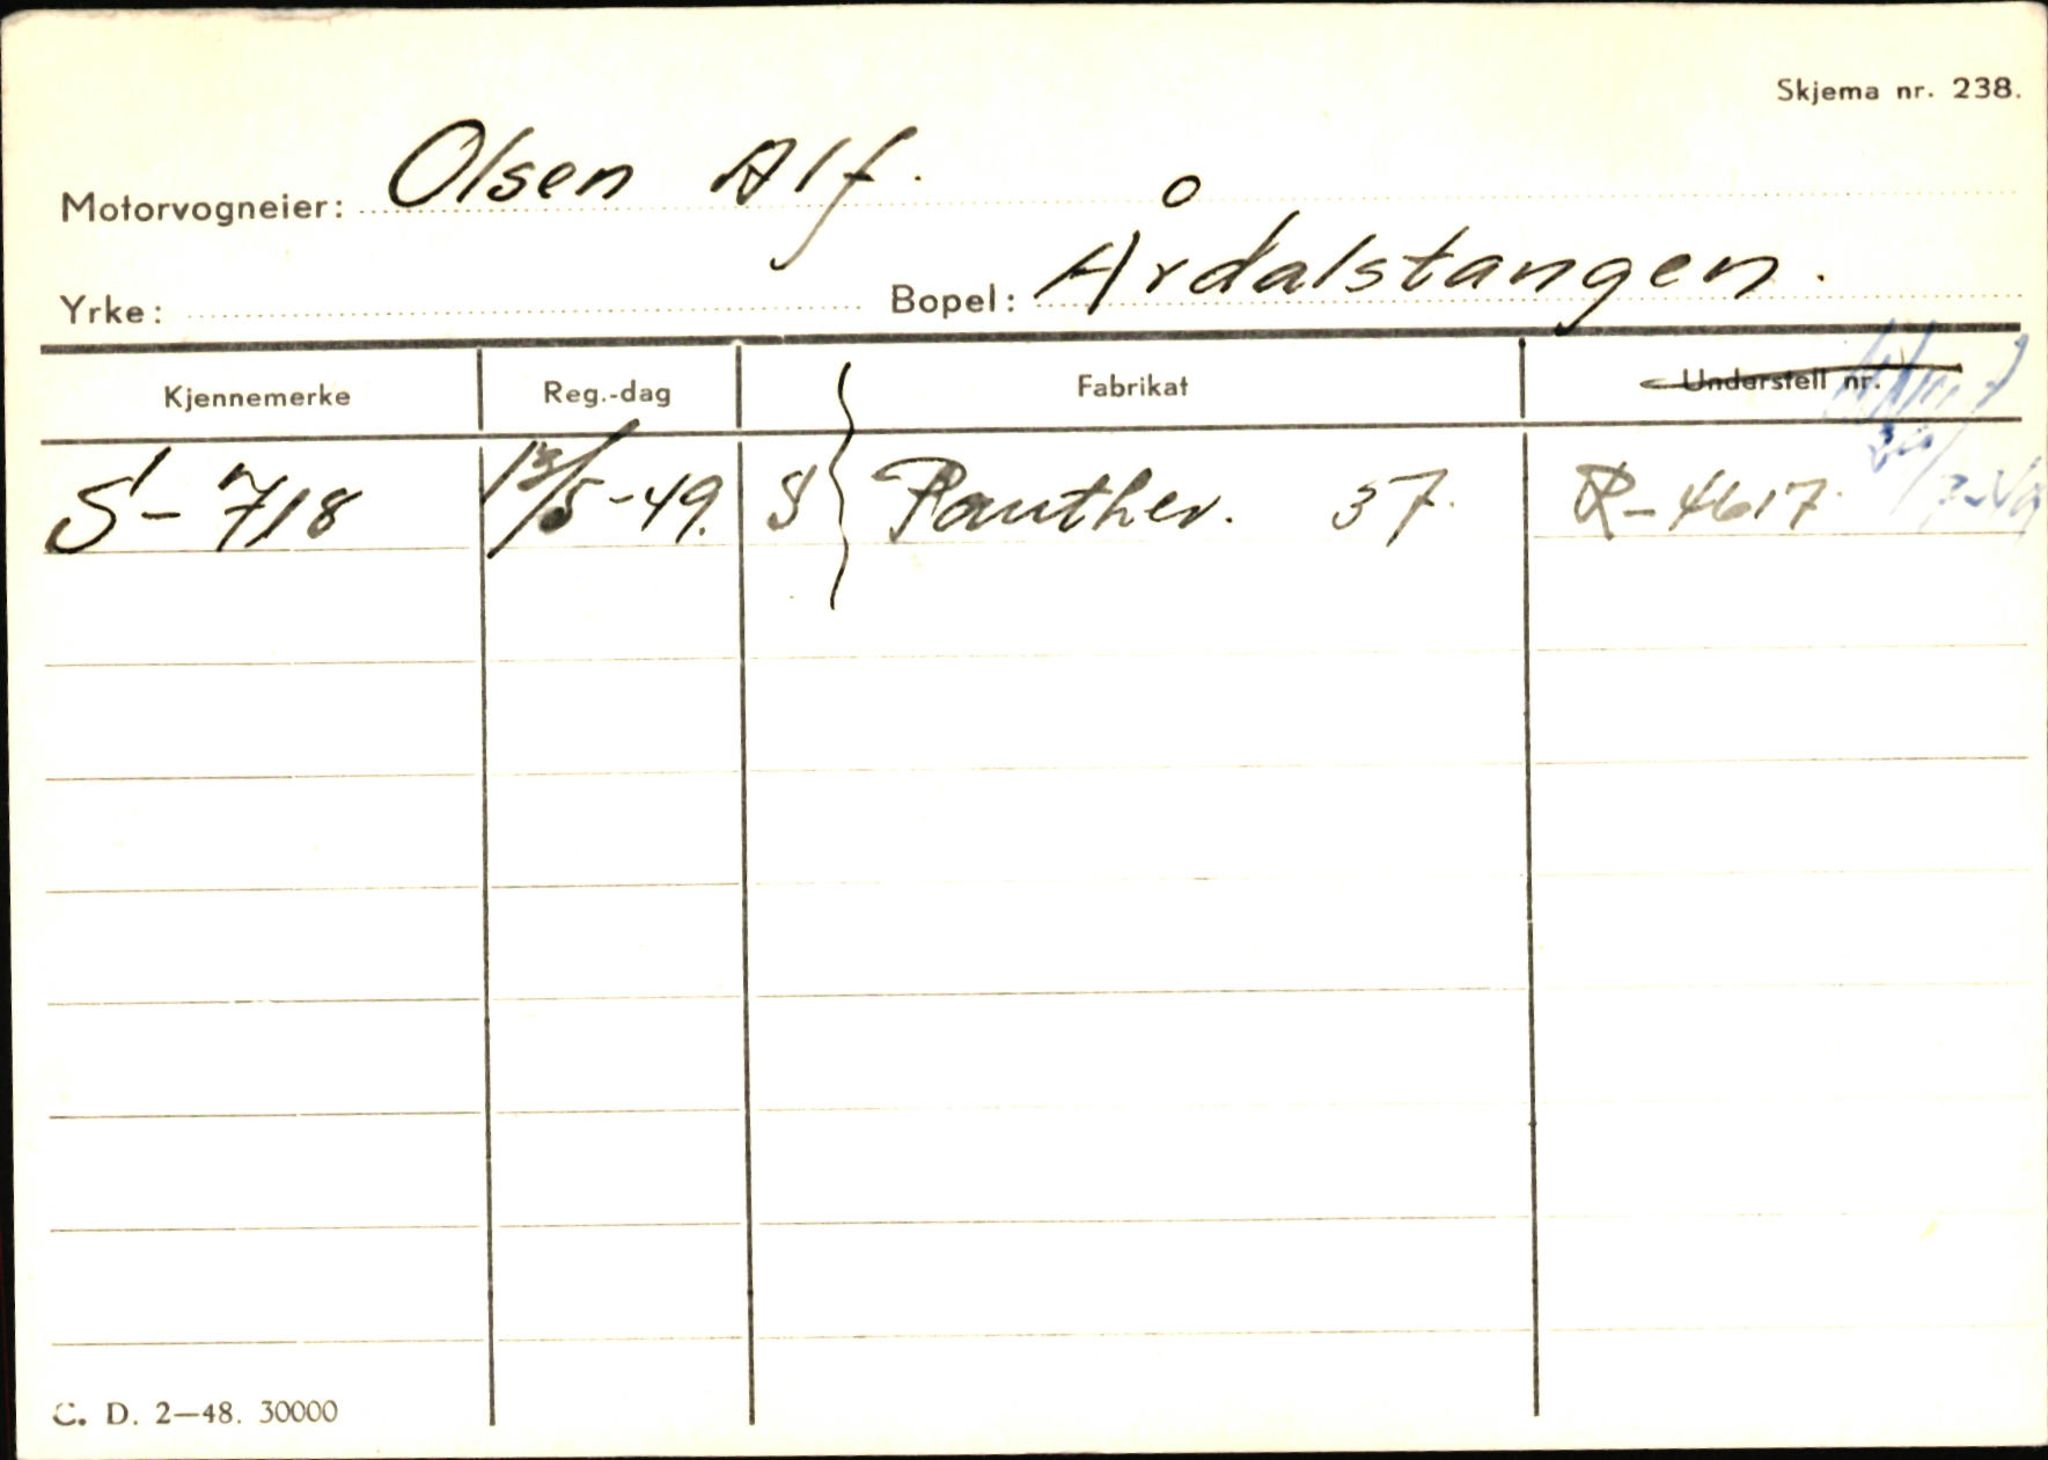 Skjema nr. 238.
Motorvogneier: Olsen Alf.
Yrke: Bopel: Årdalstangen.
Kjennemerke Reg.-dag Fabrikat Understell nr.
S-718 13/5-49. S Panther. 37. R-4617.
C. D. 2—48. 30000